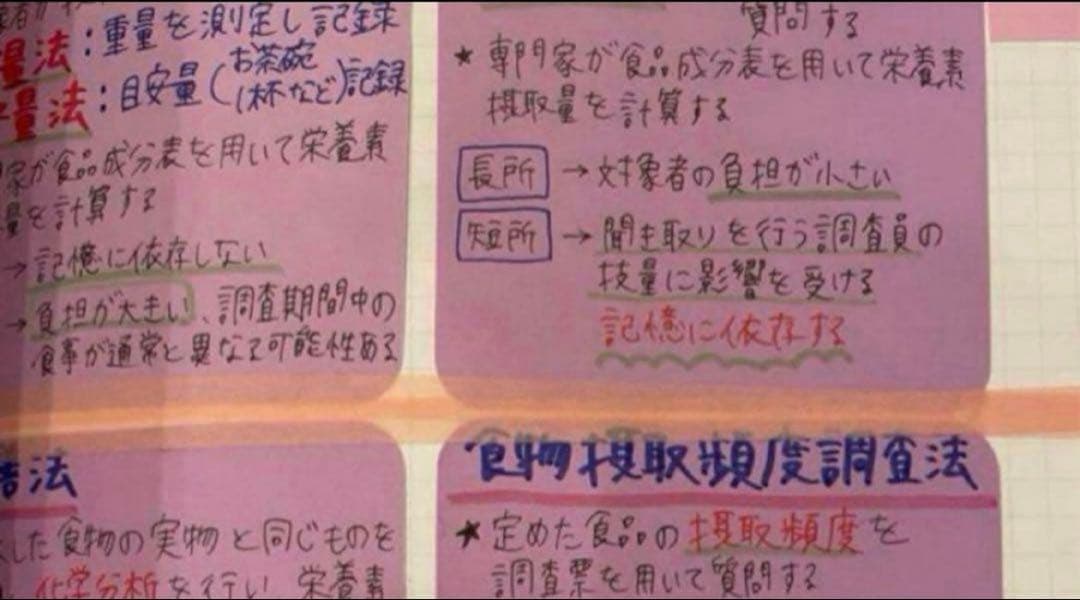 量法：重量を測定し記録
お茶碗
量法：目安量（1杯など）記録
家が食品成分表を用いて栄養素
量を計算する
→記憶に依存しない
→負担が大きい、調査期間中の
食事が通常と異なる可能性ある
質問する
★専門家が食品成分表を用いて栄養素
摂取量を計算する
長所→対象者の負担が小さい
短所→聞き取りを行う調査員の
技量に影響を受ける
記憶に依存する
法
した食物の実物と同じものを
化学分析を行い、栄養素
食物摂取頻度調査法
★定めた食品の摂取頻度を
調査票を用いて質問する